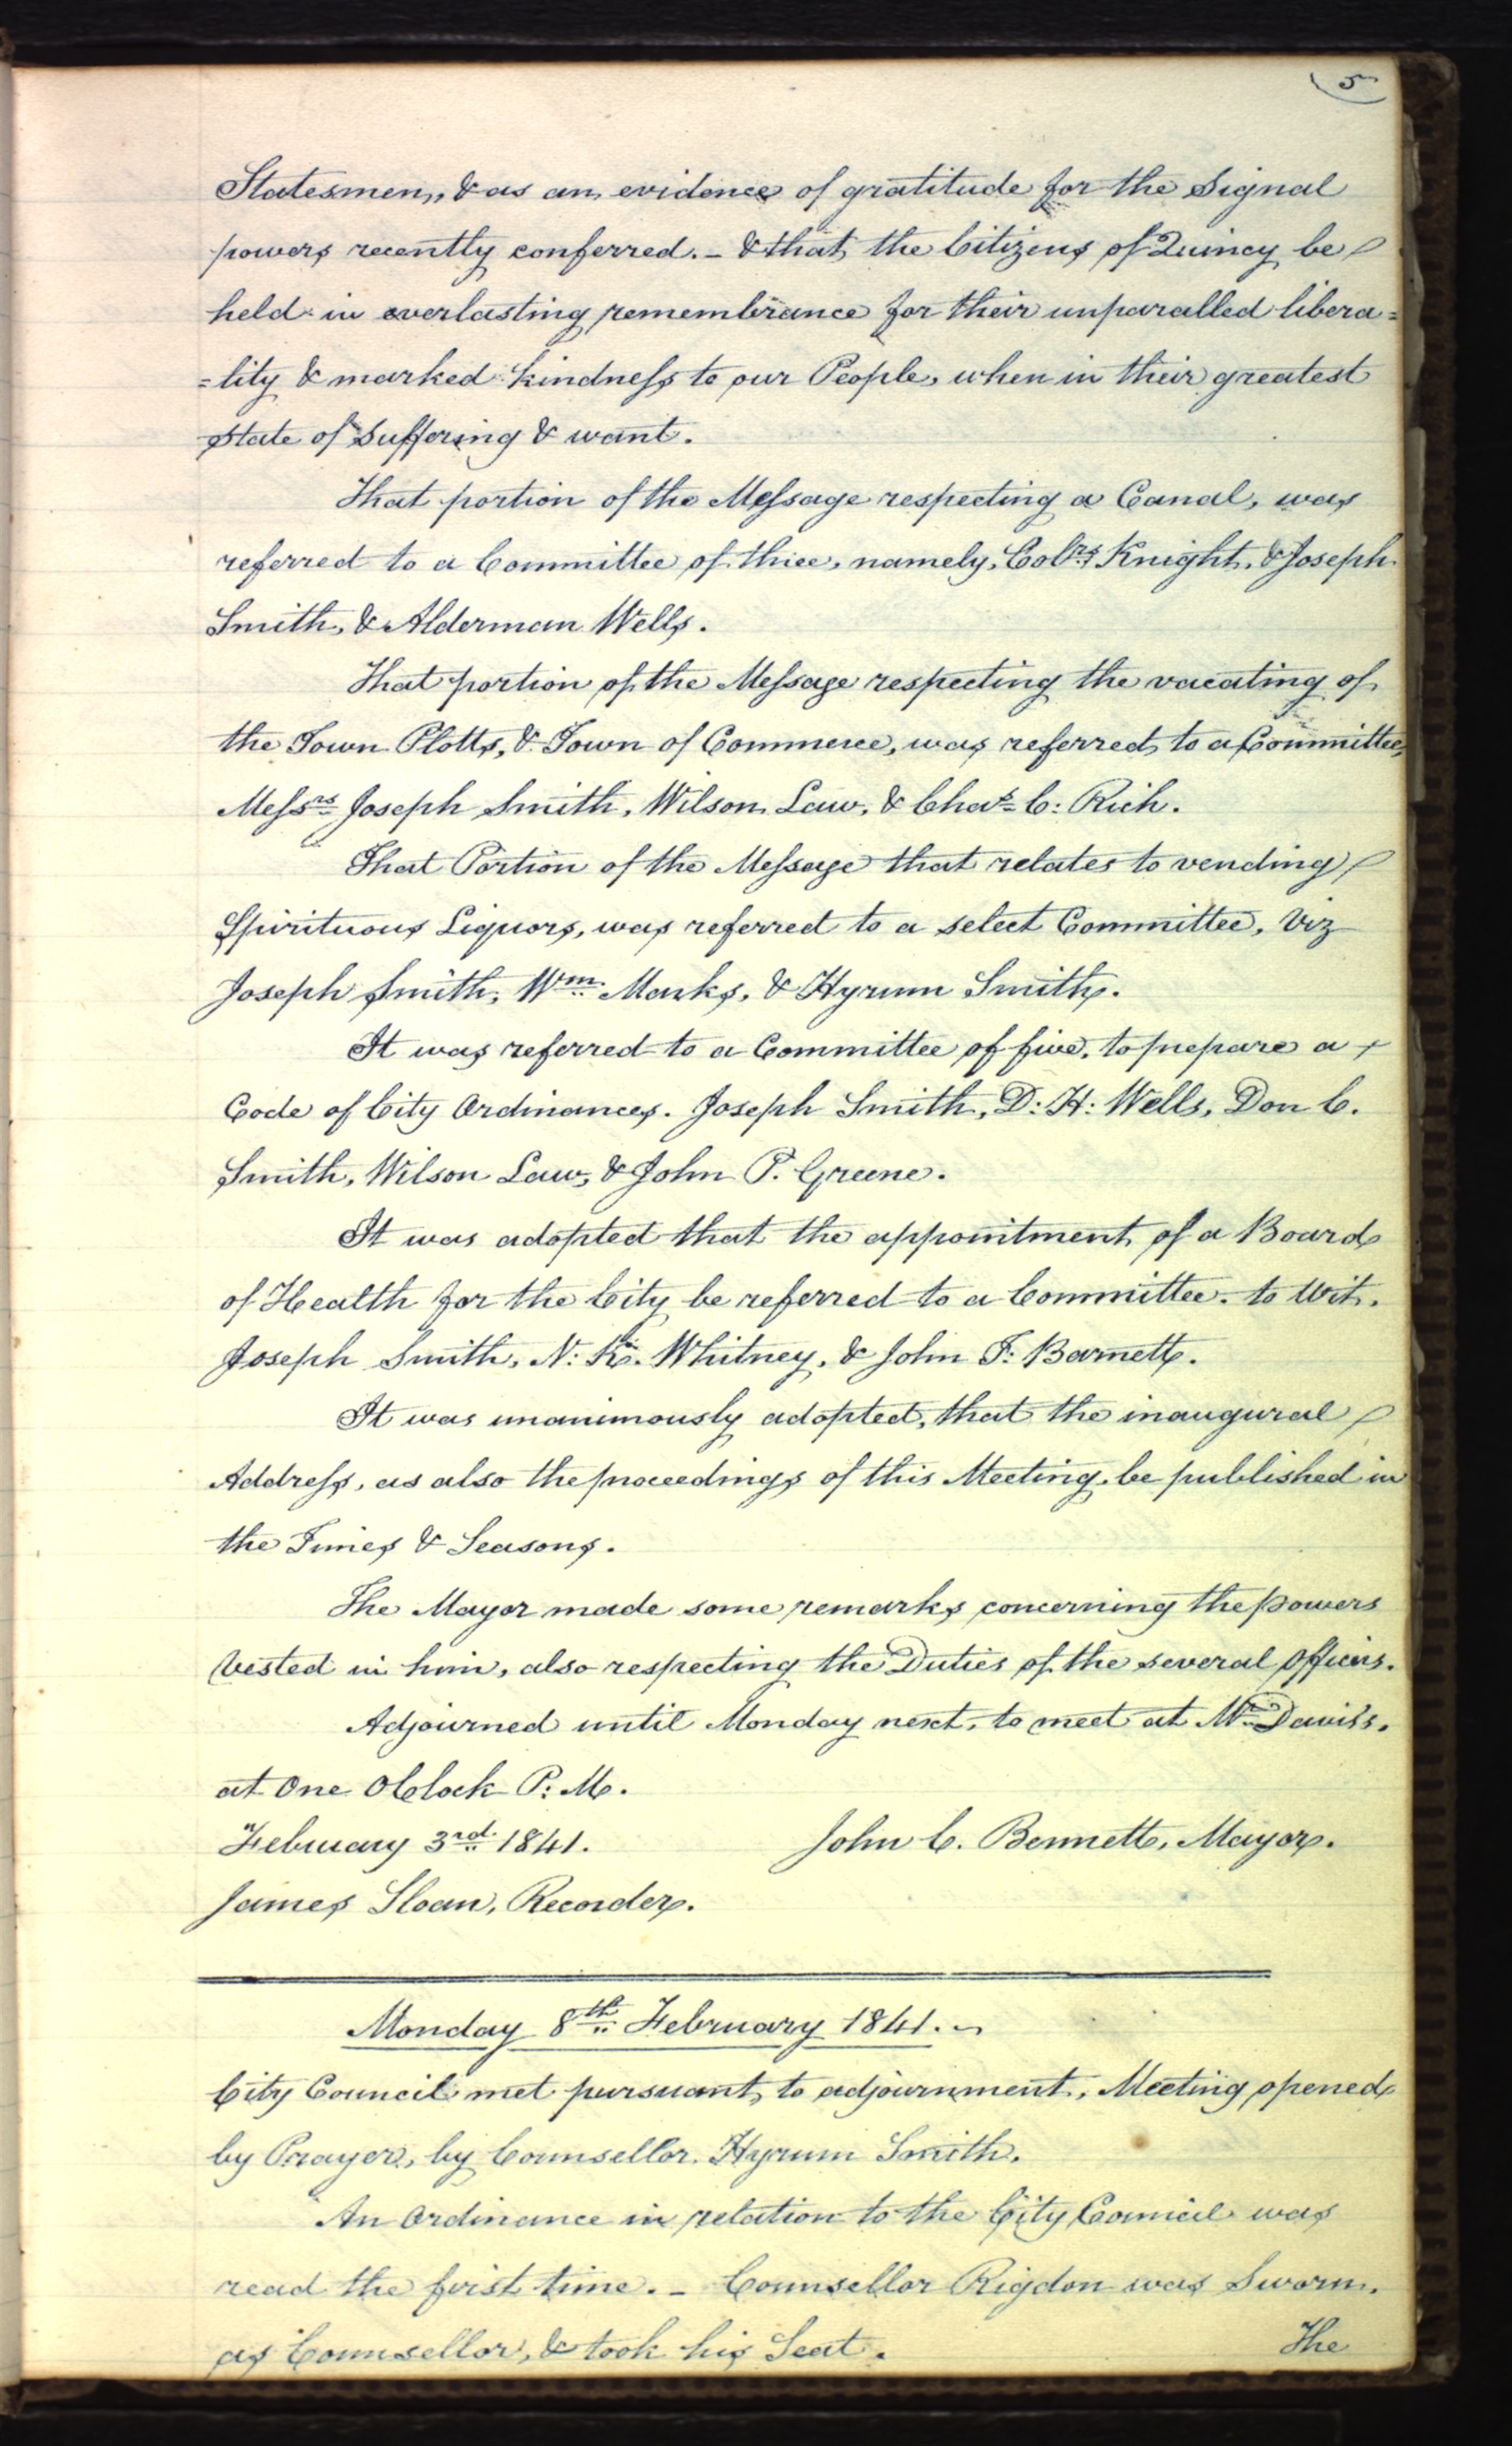 5
Statesmen, & as an evidence of gratitude for the Signal
powers recently conferred. – & that the Citizens of Quincy be
held in everlasting remembrance for their unparalled libera=
=lity & marked kindness to our People, when in their greatest
state of Suffering & want.
That portion of the Message respecting a Canal, was
referred to a Committee of three, namely, Col.rs Knight, & Joseph
Smith, & Alderman Wells.
That portion of the Message respecting the vacating of
the Town Plotts, & Town of Commerce, was referred to a Committee,
Messrs Joseph Smith, Wilson Law, & Chas C: Rich.
That Portion of the Message that relates to vending
Spirituous Liquors, was referred to a select Committee, Viz
Joseph Smith, Wm Marks, & Hyrum Smith.
It was referred to a Committee of five, to prepare a
Code of City Ordinances. Joseph Smith, D: H: Wells, Don C.
Smith, Wilson Law, & John P. Greene.
It was adopted that the appointment of a Board
of Health for the City be referred to a Committee. to Wit.
Joseph Smith, N: K. Whitney, & John F: Barnett.
It was unanimously adopted, that the inaugural
Address, as also the proceedings of this Meeting, be published in
the Times & Seasons.
The Mayor made some remarks concerning the powers
Vested in him, also respecting the Duties of the several Officers.
Adjourned until Monday next, to meet at Mr Davis's.
at One OClock P: M.
February 3rd 1841. John C. Bennett, Mayor.
James Sloan, Recorder.
Monday 8th February 1841. ~
City Council met pursuant to adjournment, Meeting opened
by Prayer, by Counsellor Hyrum Smith.
An Ordinance in relation to the City Council was
read the first time. – Counsellor Rigdon was Sworn.
as Counsellor, & took his Seat. The